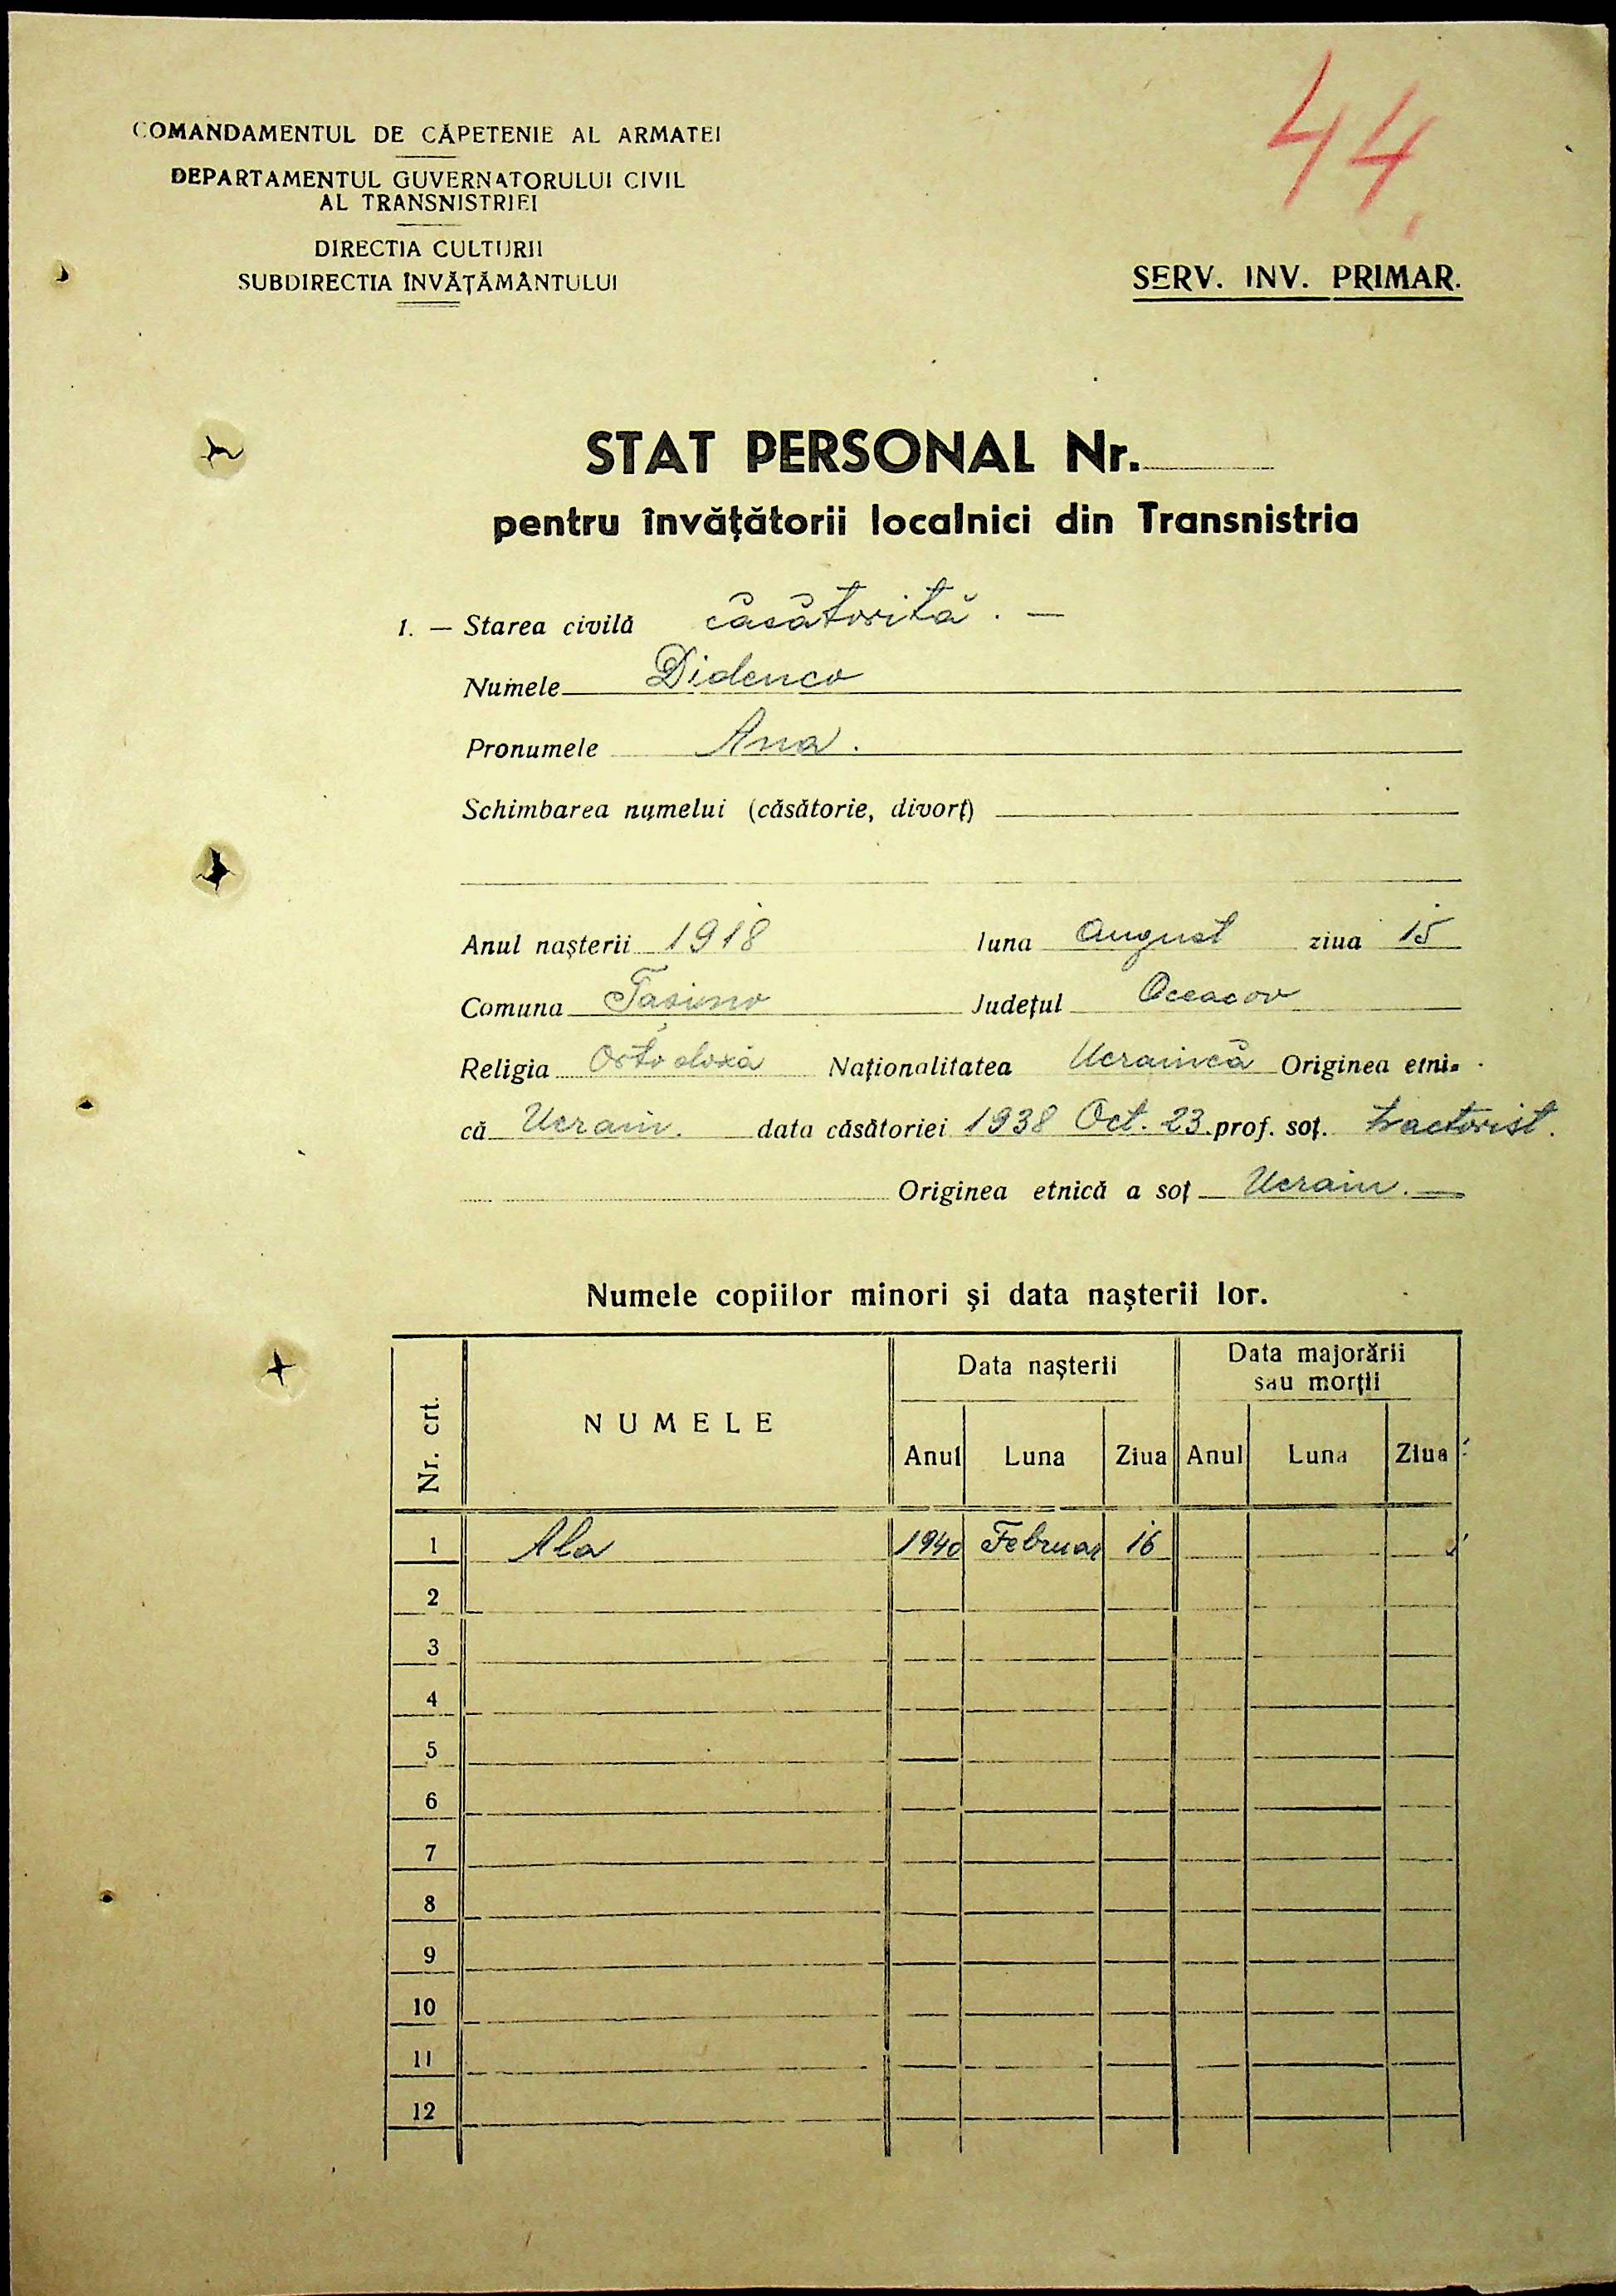 44.
COMANDAMENTUL DE CĂPETENIE AL ARMATEI
DEPARTAMENTUL GUVERNATORULUI CIVIL
AL TRANSNISTRIEI
DIRECTIA CULTURII
SUBDIRECTIA ÎNVĂȚĂMÂNTULUI
SERV. INV. PRIMAR.
STAT PERSONAL Nr.
pentru învățătorii localnici din Transnistria
1. — Starea civilă căsătorită. —
Numele Didenco
Pronumele Ana.
Schimbarea numelui (căsătorie, divorț)
Anul nașterii 1918 luna August ziua 15
Comuna Județul Oceacov
Religia Ortodoxă Naționalitatea Ucraincă Originea etni-
că Ucrain. data căsătoriei 1938 Oct. 23. prof. soț. tractorist.
Originea etnică a soț Ucrain. —
Numele copiilor minori și data nașterii lor.
Nr. crt. NUMELE Data nașterii Data majorării
sau morții
Anul Luna Ziua Anul Luna Ziua
1 Ala 1940 Februar 16
2
3
4
5
6
7
8
9
10
11
12